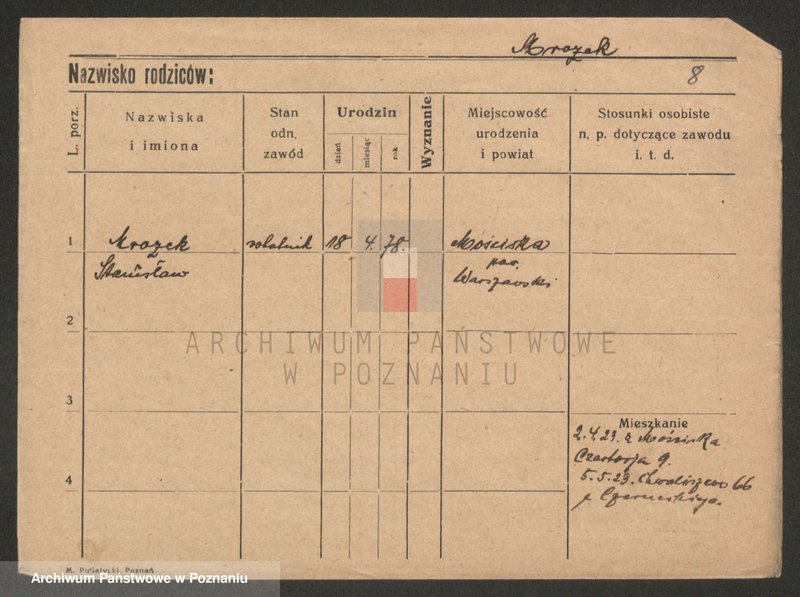 Mrozek
Nazwisko rodziców:
8
L. porz.
Nazwiska
i imiona
Stan
odn.
zawód
Urodzin
dzień
miesiąc
rok
Wyznanie
Miejscowość
urodzenia
i powiat
Stosunki osobiste
n. p. dotyczące zawodu
i. t. d.
1
Mrozek
Stanisław
robotnik
18
4.
78.
Mościska
pow.
Warszawski
2
ARCHIWUM PAŃSTWOWE
W POZNANIU
3
Mieszkanie
2.4.23. z Mościska
Czartorja 9.
4
5.5.23. Chwaliszewo 66
M. Putiatycki, Poznań
Archiwum Państwowe w Poznaniu